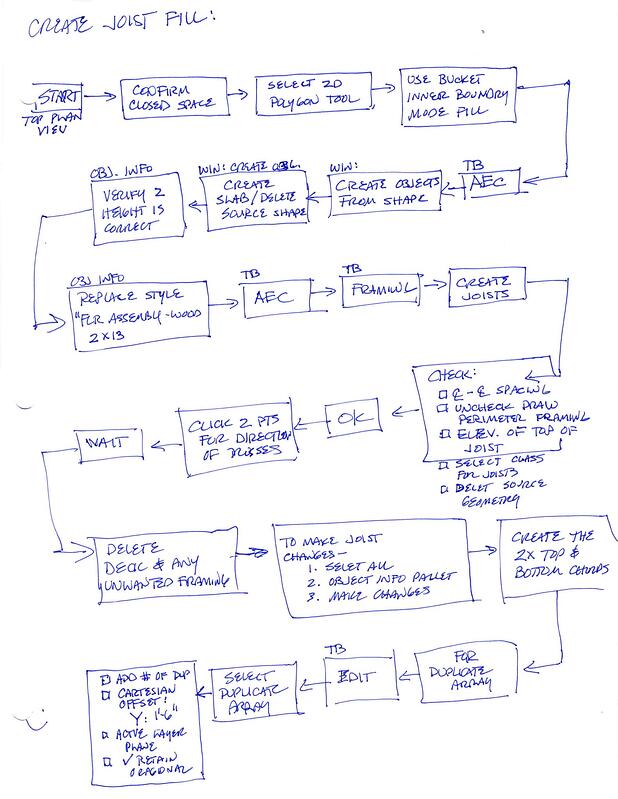 CREATE JOIST FILL:
START
TOP PLAN
VIEW
CONFIRM
CLOSED SPACE
SELECT 2D
POLYGON TOOL
USE BUCKET
INNER BOUNDRY
MODE FILL
TB
AEC
WIN:
CREATE OBJECTS
FROM SHAPE
WIN: CREATE OBJ.
CREATE
SLAB/DELETE
SOURCE SHAPE
OBJ. INFO
VERIFY Z
HEIGHT IS
CORRECT
OBJ INFO
REPLACE STYLE
"FLR ASSEMBLY-WOOD
2X13
TB
AEC
TB
FRAMING
CREATE
JOISTS
CHECK:
℄-℄ SPACING
UNCHECK DRAW
PERIMETER FRAMING
ELEV. OF TOP OF
JOIST
SELECT CLASS
FOR JOISTS
DELET SOURCE
GEOMETRY
OK
CLICK 2 PTS
FOR DIRECTION
OF TRUSSES
WAIT
DELETE
DECK & ANY
UNWANTED FRAMING
TO MAKE JOIST
CHANGES-
1. SELET ALL
2. OBJECT INFO PALLET
3. MAKE CHANGES
CREATE THE
2X TOP &
BOTTOM CHORDS
FOR
DUPLICATE
ARRAY
TB
EDIT
SELECT
DUPLICATE
ARRAY
ADD # OF DUP
CARTESIAN
OFFSET!
Y: 1'-6"
ACTIVE LAYER
PLANE
✓ RETAIN
ORAGIONAL